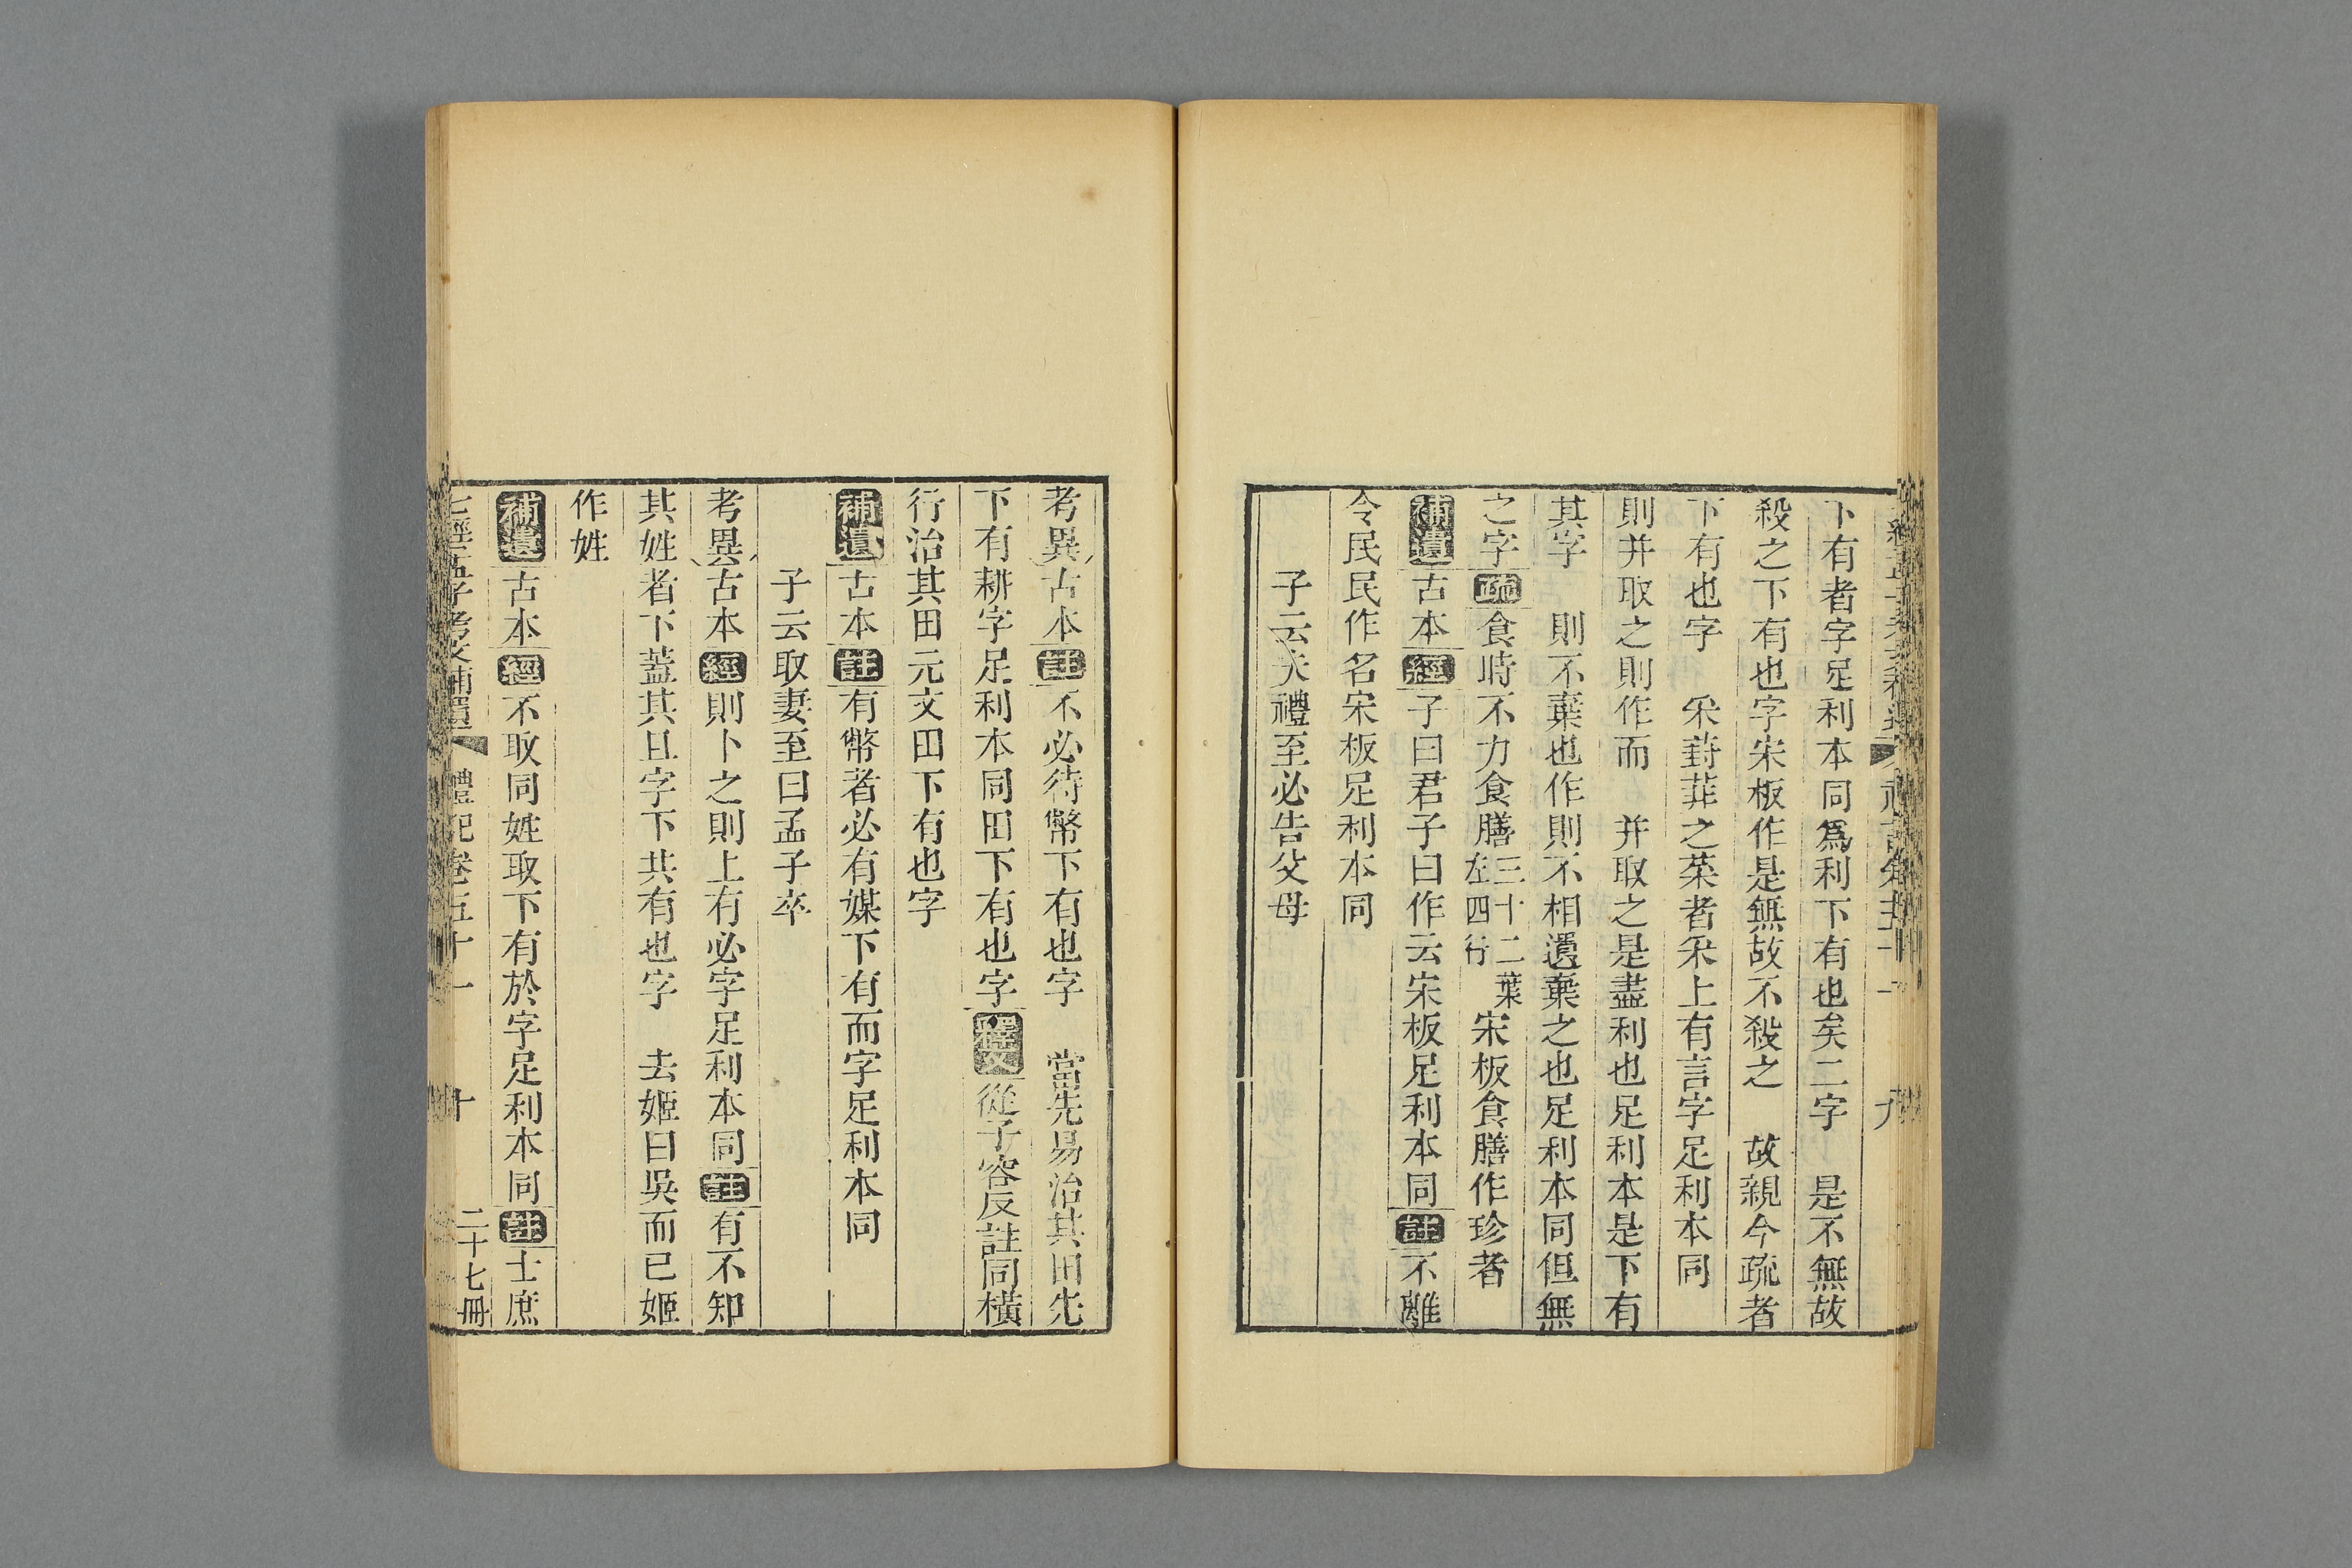 下有者字足利本同爲利下有也矣二字　是不無故
殺之下有也字宋板作是無故不殺之　故親今疏者
下有也字　采葑菲之菜者采上有言字足利本同
則并取之則作而　并取之是盡利也足利本是下有
其字　則不棄也作則不相遺棄之也足利本同但無
之字疏食時不力食膳三十二葉左四行宋板食膳作珍者
補遺古本經子曰君子曰作云宋板足利本同註不離
令民民作名宋板足利本同
子云夫禮至必告父母
考異古本註不必待幣下有也字　當先易治其田先
下有耕字足利本同田下有也字釋文從子容反註同橫
行治其田元文田下有也字
補遺古本註有幣者必有媒下有而字足利本同
子云取妻至曰孟子卒
考異古本經則卜之則上有必字足利本同註有不知
其姓者下蓋其且字下共有也字　去姬曰吳而已姬
作姓
補遺古本經不取同姓取下有於字足利本同註士庶
七經孟子考文補遺　禮記卷五十一　十　二十七冊